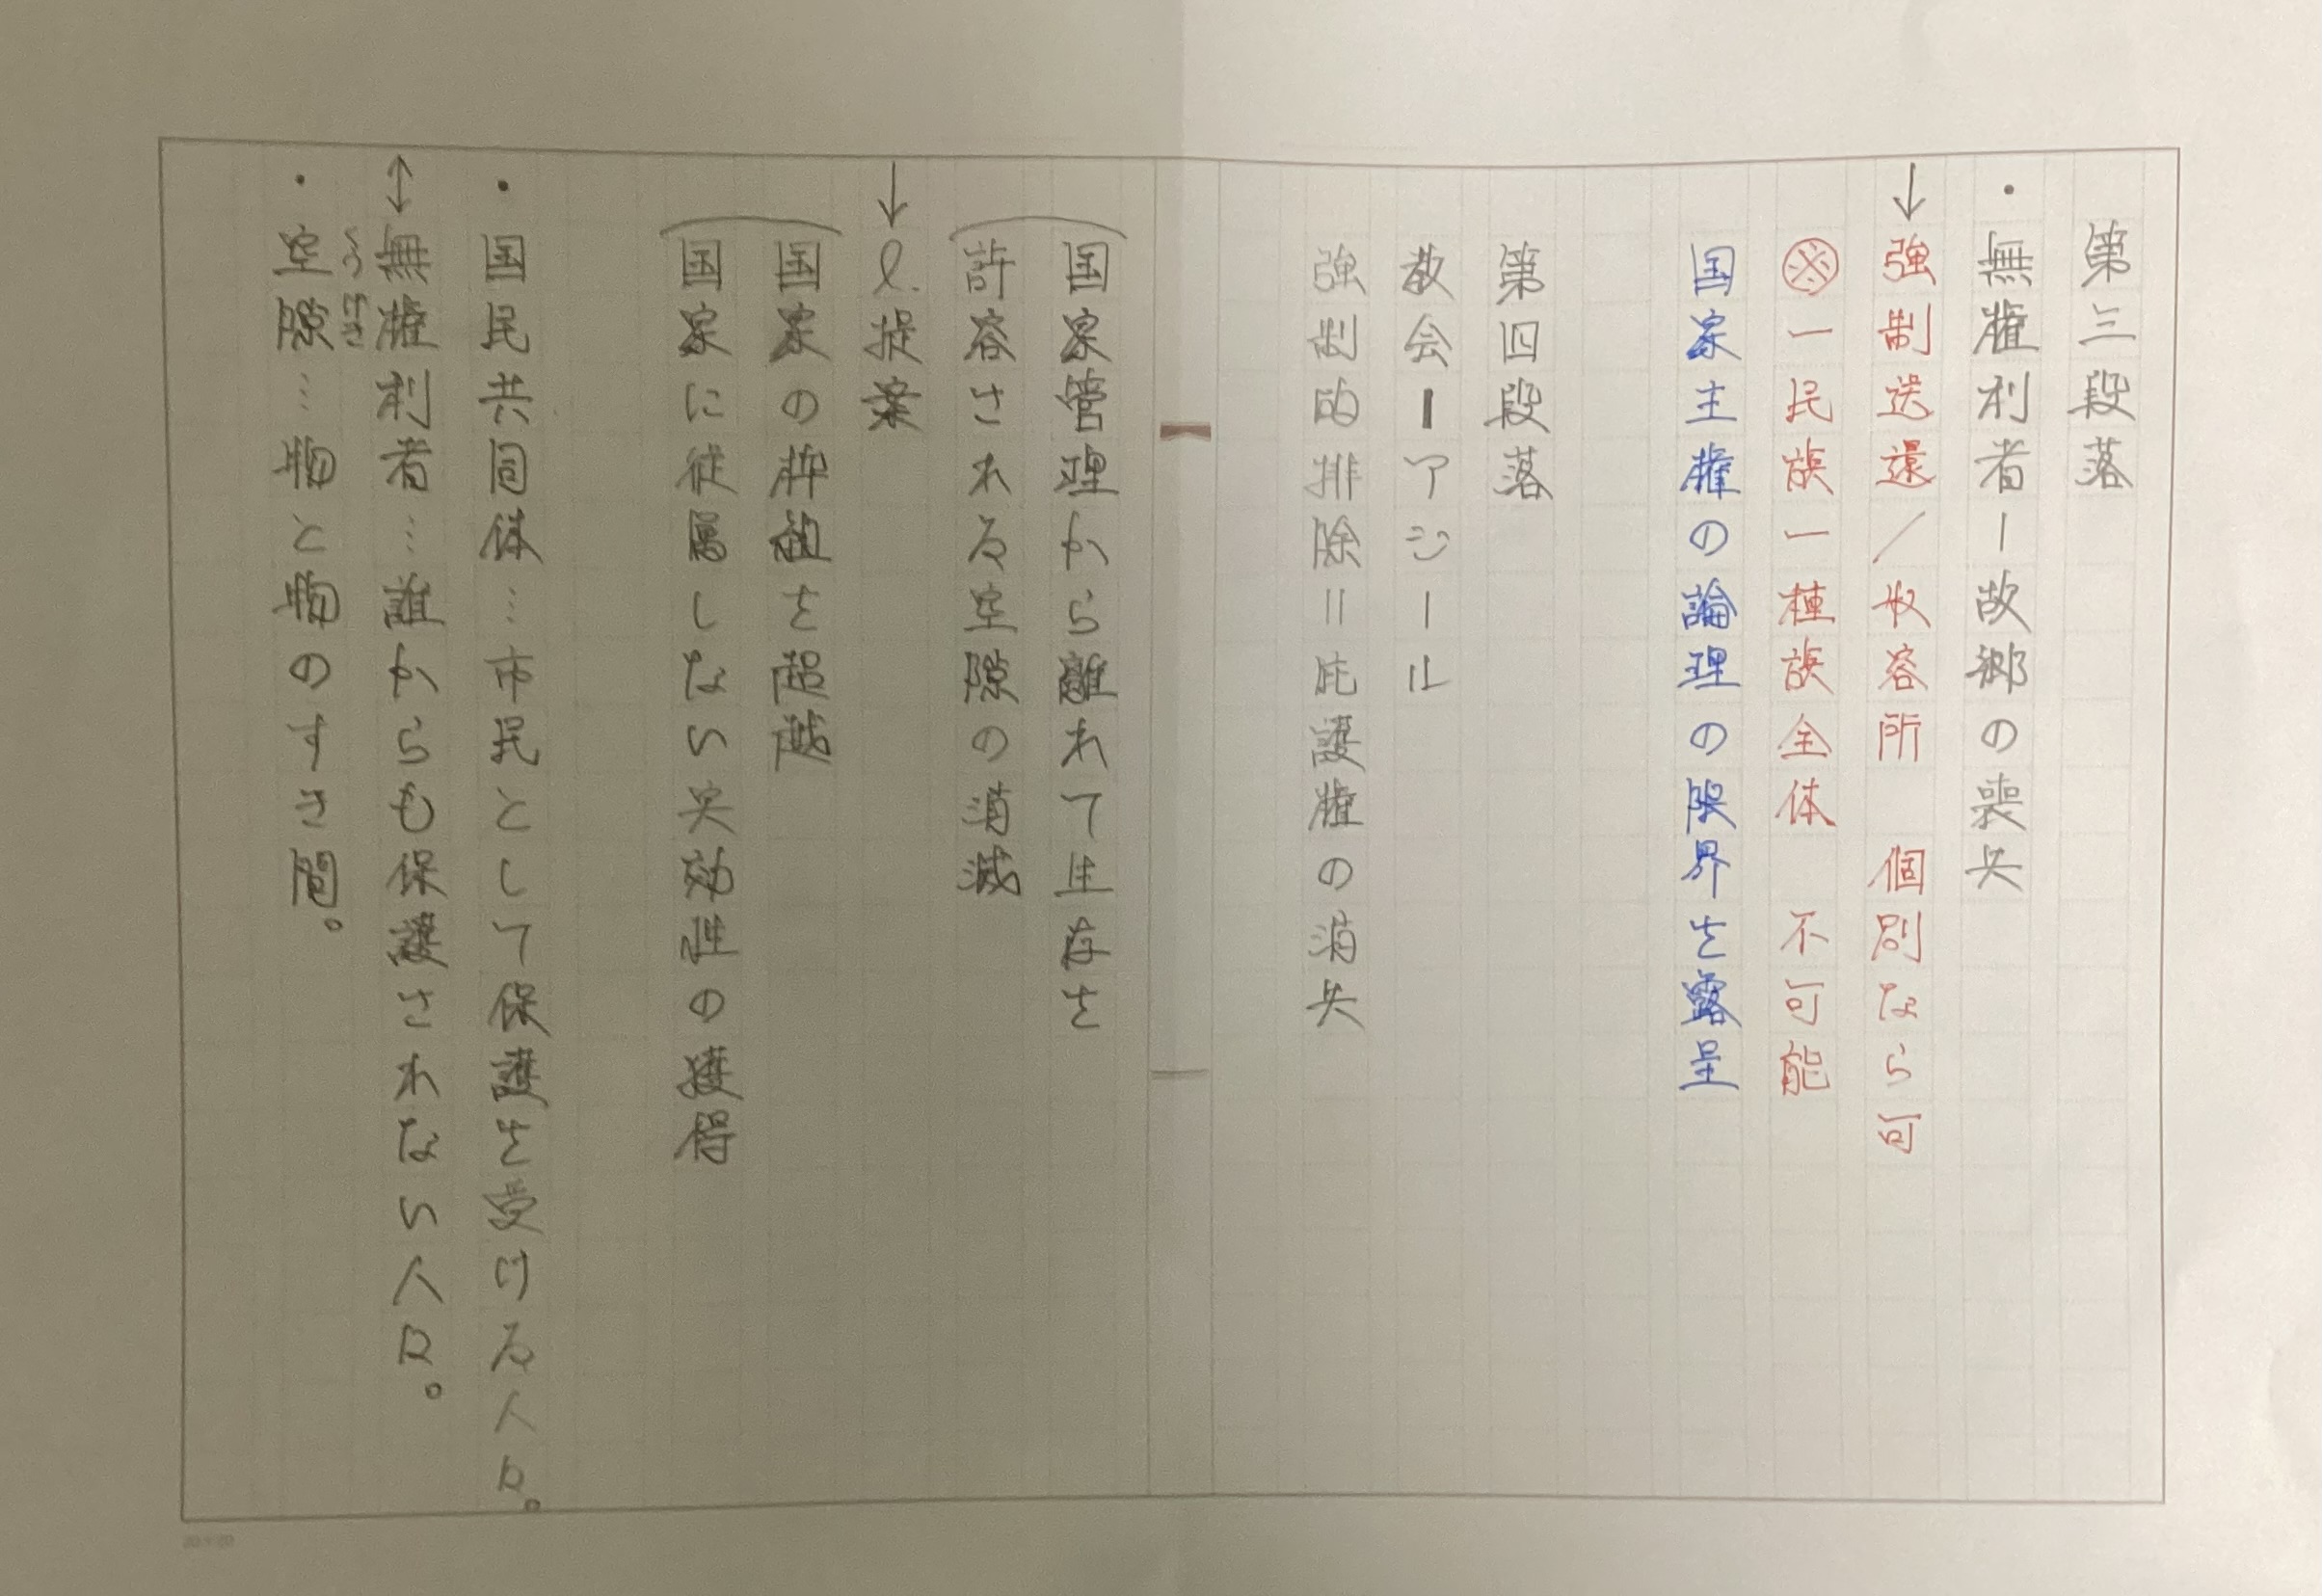 第三段落
・無権利者ー故郷の喪失
↓強制送還／収容所　個別なら可
※一民族一種族全体　不可能
国家主権の論理の限界を露呈
第四段落
教会ーアジール
強制的排除＝庇護権の消失
国家管理から離れて生存を
許容される空隙の消滅
↓提案
国家の枠組を超越
国家に従属しない実効性の獲得
・国民共同体…市民として保護を受ける人々。
↕無権利者…誰からも保護されない人々。
くうげき
・空隙…物と物のすき間。